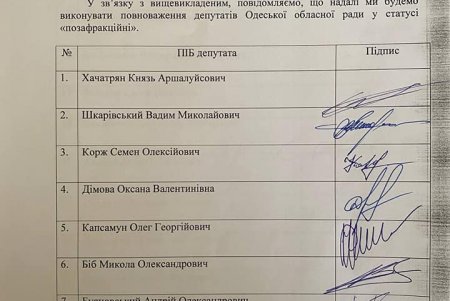 У зв'язку з вищевикладеним, повідомляємо, що надалі ми будемо
виконувати повноваження депутатів Одеської обласної ради у статусі
«позафракційні».
№ ПІБ депутата Підпис
1. Хачатрян Князь Аршалуйсович
2. Шкарівський Вадим Миколайович
3. Корж Семен Олексійович
4. Дімова Оксана Валентинівна
5. Капсамун Олег Георгійович
6. Біб Микола Олександрович
7. Андрій Олександрович